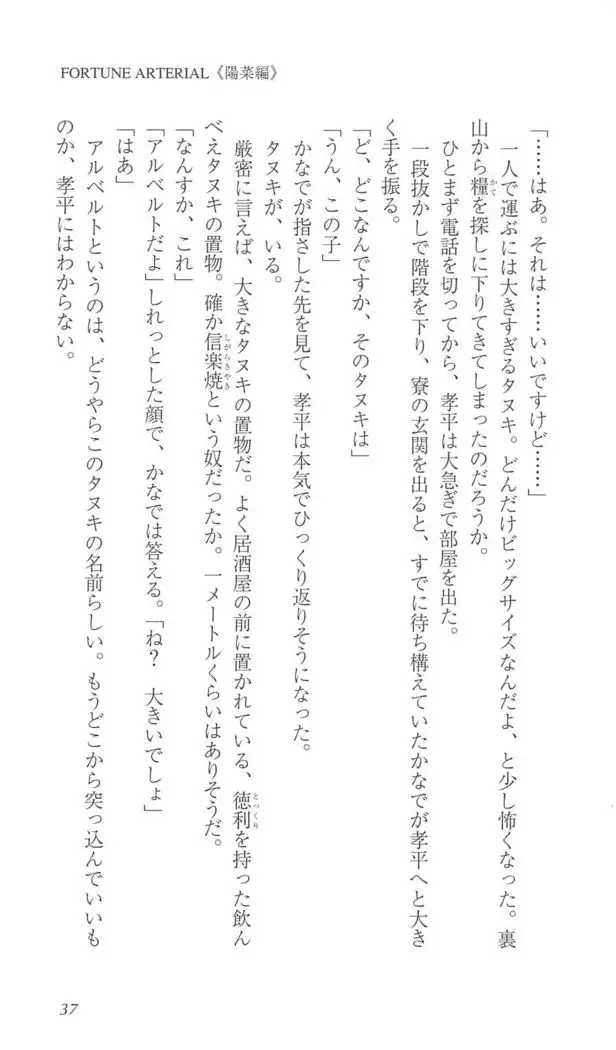 FORTUNE ARTERIAL《陽菜編》
「……はあ。それは……いいですけど……」
一人で運ぶには大きすぎるタヌキ。どんだけビッグサイズなんだよ、と少し怖くなった。裏
山から糧を探しに下りてきてしまったのだろうか。
かて
ひとまず電話を切ってから、孝平は大急ぎで部屋を出た。
一段抜かしで階段を下り、寮の玄関を出ると、すでに待ち構えていたかなでが孝平へと大き
く手を振る。
「ど、どこなんですか、そのタヌキは」
「うん、この子」
かなでが指さした先を見て、孝平は本気でひっくり返りそうになった。
タヌキが、いる。
厳密に言えば、大きなタヌキの置物だ。よく居酒屋の前に置かれている、徳利を持った飲ん
とっくり
べえタヌキの置物。確か信楽焼という奴だったか。一メートルくらいはありそうだ。
しがらきやき
「なんすか、これ」
「アルベルトだよ」しれっとした顔で、かなでは答える。「ね？　大きいでしょ」
「はあ」
アルベルトというのは、どうやらこのタヌキの名前らしい。もうどこから突っ込んでいいも
のか、孝平にはわからない。
37